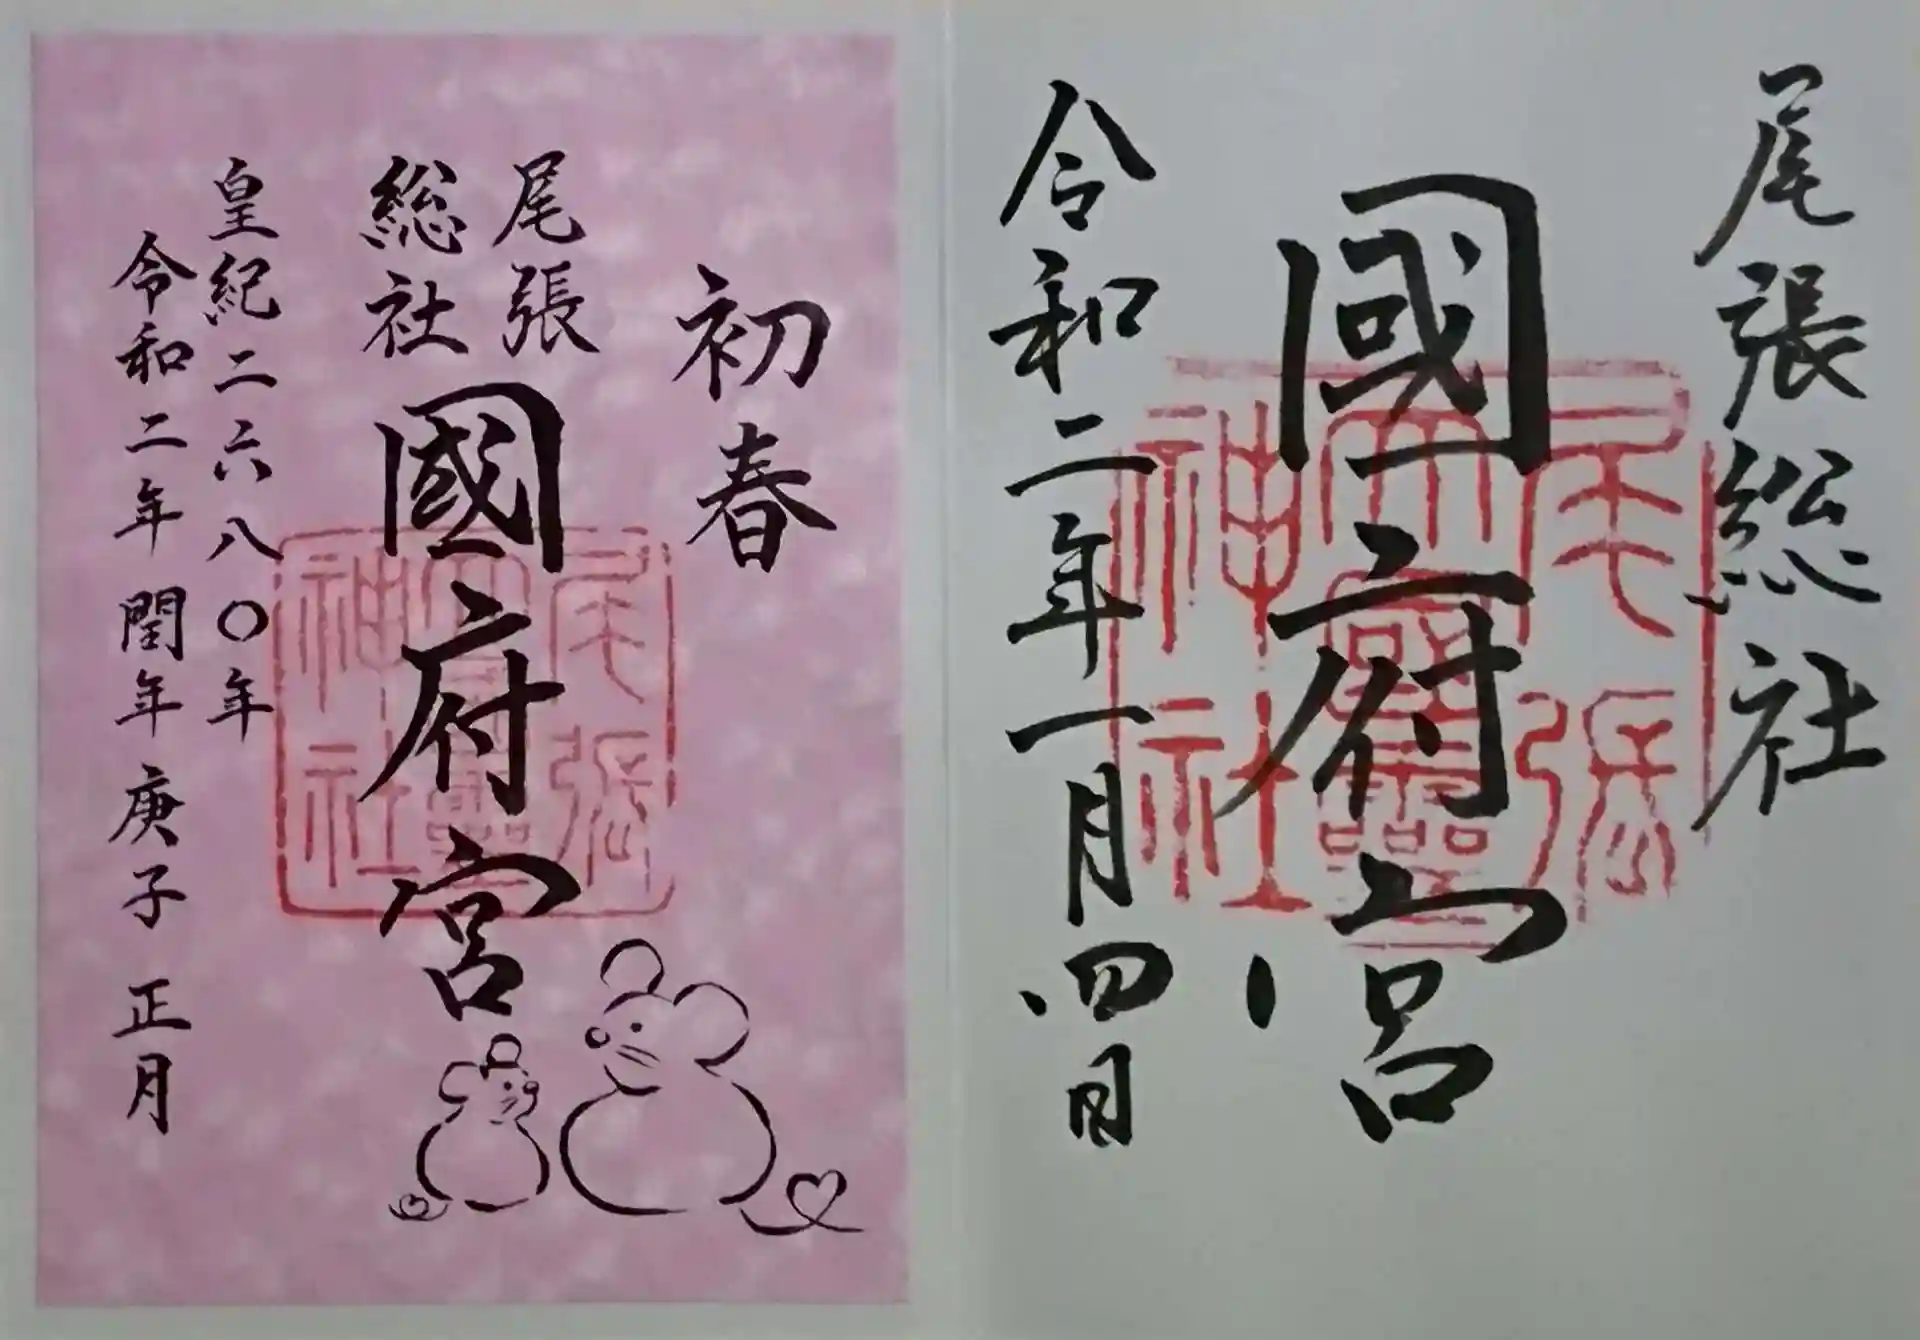 尾張総社
國府宮
令和二年一月四日
尾張大國霊神社
初春
尾張
総社
國府宮
皇紀二六八〇年
令和二年 閏年 庚子 正月
尾張大國霊神社